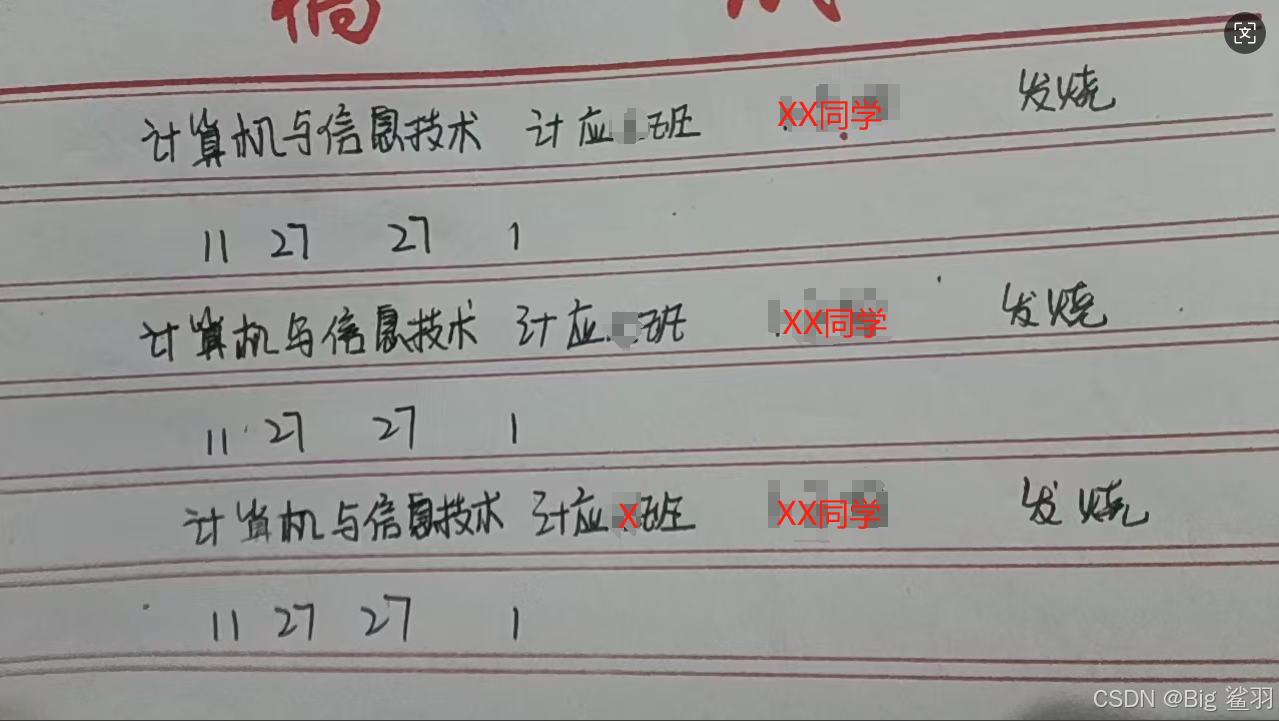 计算机与信息技术 计应 班 XX同学 发烧
11 27 27 1
计算机与信息技术 计应 班 XX同学 发烧
11 27 27 1
计算机与信息技术 计应X班 XX同学 发烧
11 27 27 1
CSDN @Big 鲨羽